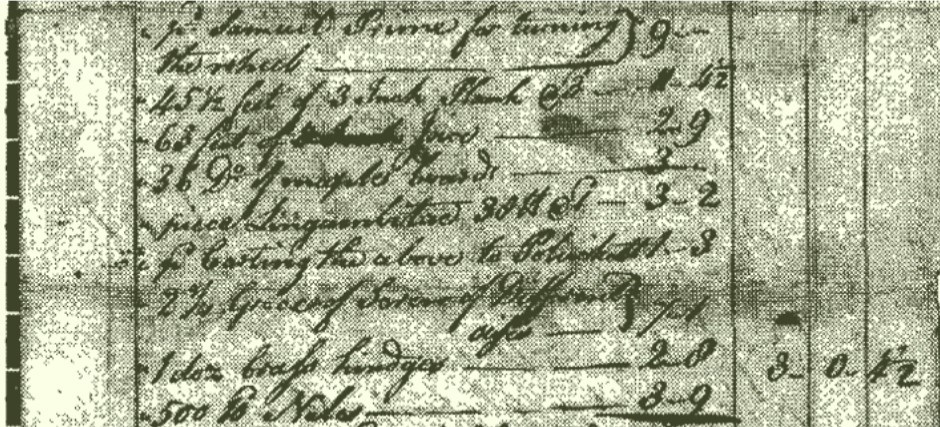 pd Samuel Prime for turning } 9 -
the wheel
45 1/2 feet of 3 Inch Plank - 11 - 4 1/2
63 feet of Joice 2 - 9
36 Do of maple boards 3
piece Lingamlitiae 38 - 3 - 2
pd Carting the above to 1 - 3
2 Groce of Screws of Different }
sises
1 doz brass hindges 2 - 8 3 - 0 - 4 1/2
500 Nales 3 - 9